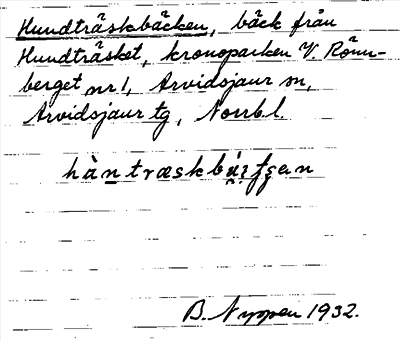 Hundträskbäcken, bäck från
Hundträsket, kronoparken V. Rönn-
berget nr 1, Arvidsjaur sn,
Arvidsjaur tg, Norrb.l.
B. Nyppen 1932.